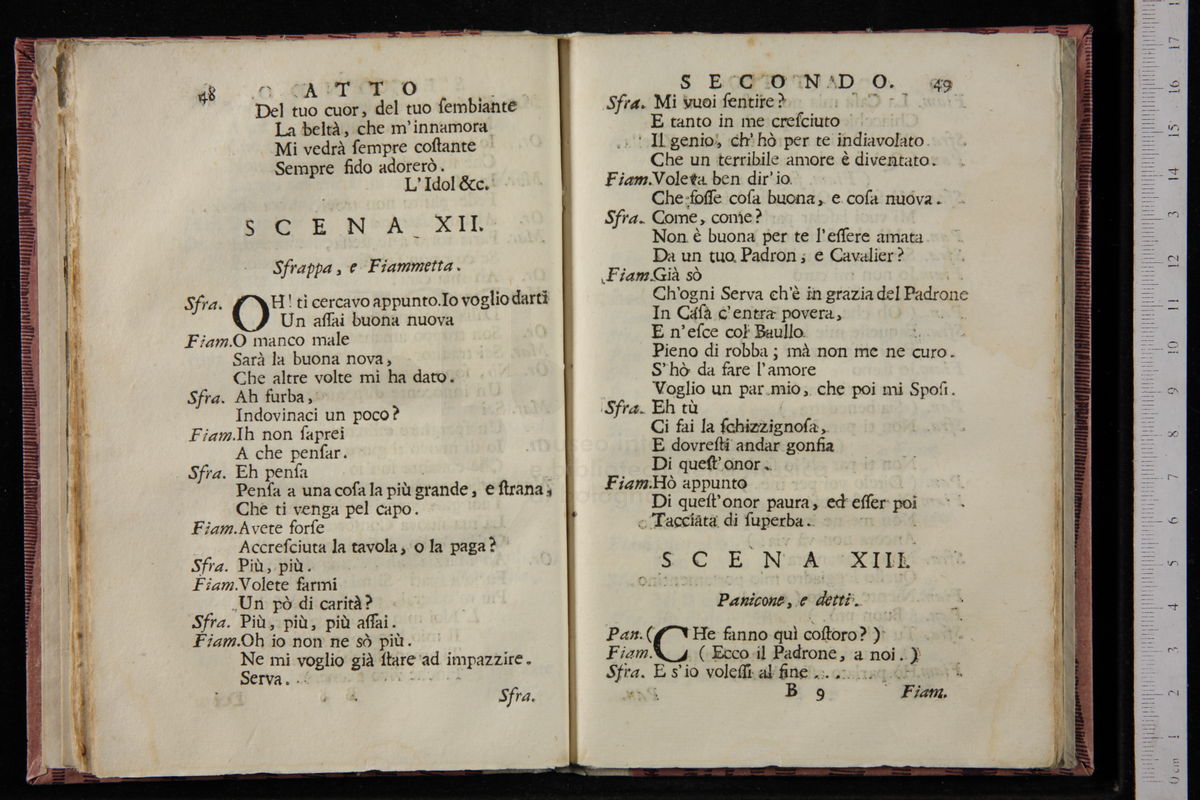 48 ATTO
Del tuo cuor, del tuo ſembiante
La beltà, che m'innamora
Mi vedrà ſempre coſtante
Sempre fido adorerò.
L'Idol &c.
SCENA XII.
Sfrappa, e Fiammetta.
Sfra. OH! ti cercavo appunto. Io voglio darti
Un aſſai buona nuova
Fiam. O manco male
Sarà la buona nova,
Che altre volte mi ha dato.
Sfra. Ah furba,
Indovinaci un poco?
Fiam. Ih non ſaprei
A che penſar.
Sfra. Eh penſa
Penſa a una coſa la più grande, e ſtrana,
Che ti venga pel capo.
Fiam. Avete forſe
Accreſciuta la tavola, o la paga?
Sfra. Più, più.
Fiam. Volete farmi
Un pò di carità?
Sfra. Più, più, più aſſai.
Fiam. Oh io non ne sò più.
Ne mi voglio già ſtare ad impazzire.
Serva.
Sfra.
SECONDO. 49
Sfra. Mi vuoi ſentire?
E tanto in me creſciuto
Il genio, ch'hò per te indiavolato
Che un terribile amore è diventato.
Fiam. Voleva ben dir'io
Che foſſe coſa buona, e coſa nuova.
Sfra. Come, come?
Non è buona per te l'eſſere amata
Da un tuo Padron, e Cavalier?
Fiam. Già sò
Ch'ogni Serva ch'è in grazia del Padrone
In Caſa c'entra povera,
E n'eſce col Baullo
Pieno di robba; mà non me ne curo.
S'hò da fare l'amore
Voglio un par mio, che poi mi Spoſi.
Sfra. Eh tù
Ci fai la ſchizzignoſa,
E dovreſti andar gonfia
Di queſt'onor.
Fiam. Hò appunto
Di queſt'onor paura, ed eſſer poi
Tacciata di ſuperba.
SCENA XIII.
Panicone, e detti.
Pan. (CHe fanno quì coſtoro?)
Fiam. (Ecco il Padrone, a noi.)
Sfra. E s'io voleſſi al fine...
B 9 Fiam.